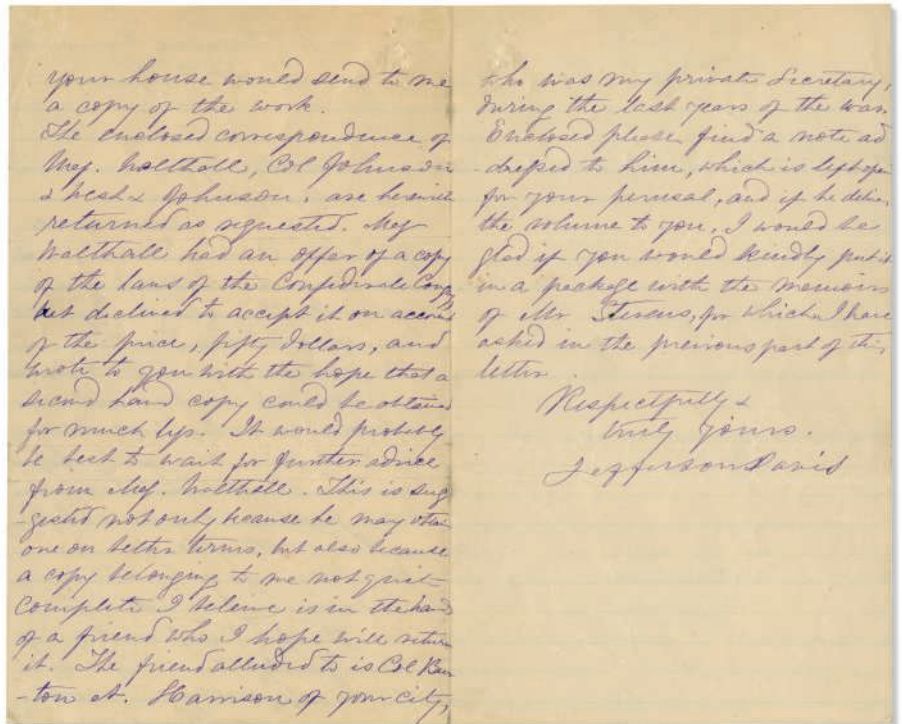 your house would send to me
a copy of the work.
The enclosed correspondence of
Maj. Walthall, Col Johnson
& Johnson, are herewith
returned as requested. Maj
Walthall had an offer of a copy
of the laws of the Confederate Cong
but declined to accept it on account
of the price, fifty dollars, and
wrote to you with the hope that a
second hand copy could be obtained
for much less. It would probably
be best to wait for further advice
from Maj. Walthall. This is sug
-gested not only because he may obtain
one on better terms, but also because
a copy belonging to me not quite
complete I believe is in the hands
of a friend who I hope will return
it. The friend alluded to is Col Bur
-ton N. Harrison of your city,
who was my private Secretary,
during the last years of the war.
Enclosed please find a note ad
-dressed to him, which is left open
for your perusal, and if he deliver
the volume to you, I would be
glad if you would kindly put it
in a package with the memoirs
of Mr Stevens, for which I have
asked in the previous part of this
letter.
Respectfully &
truly yours.
Jefferson Davis